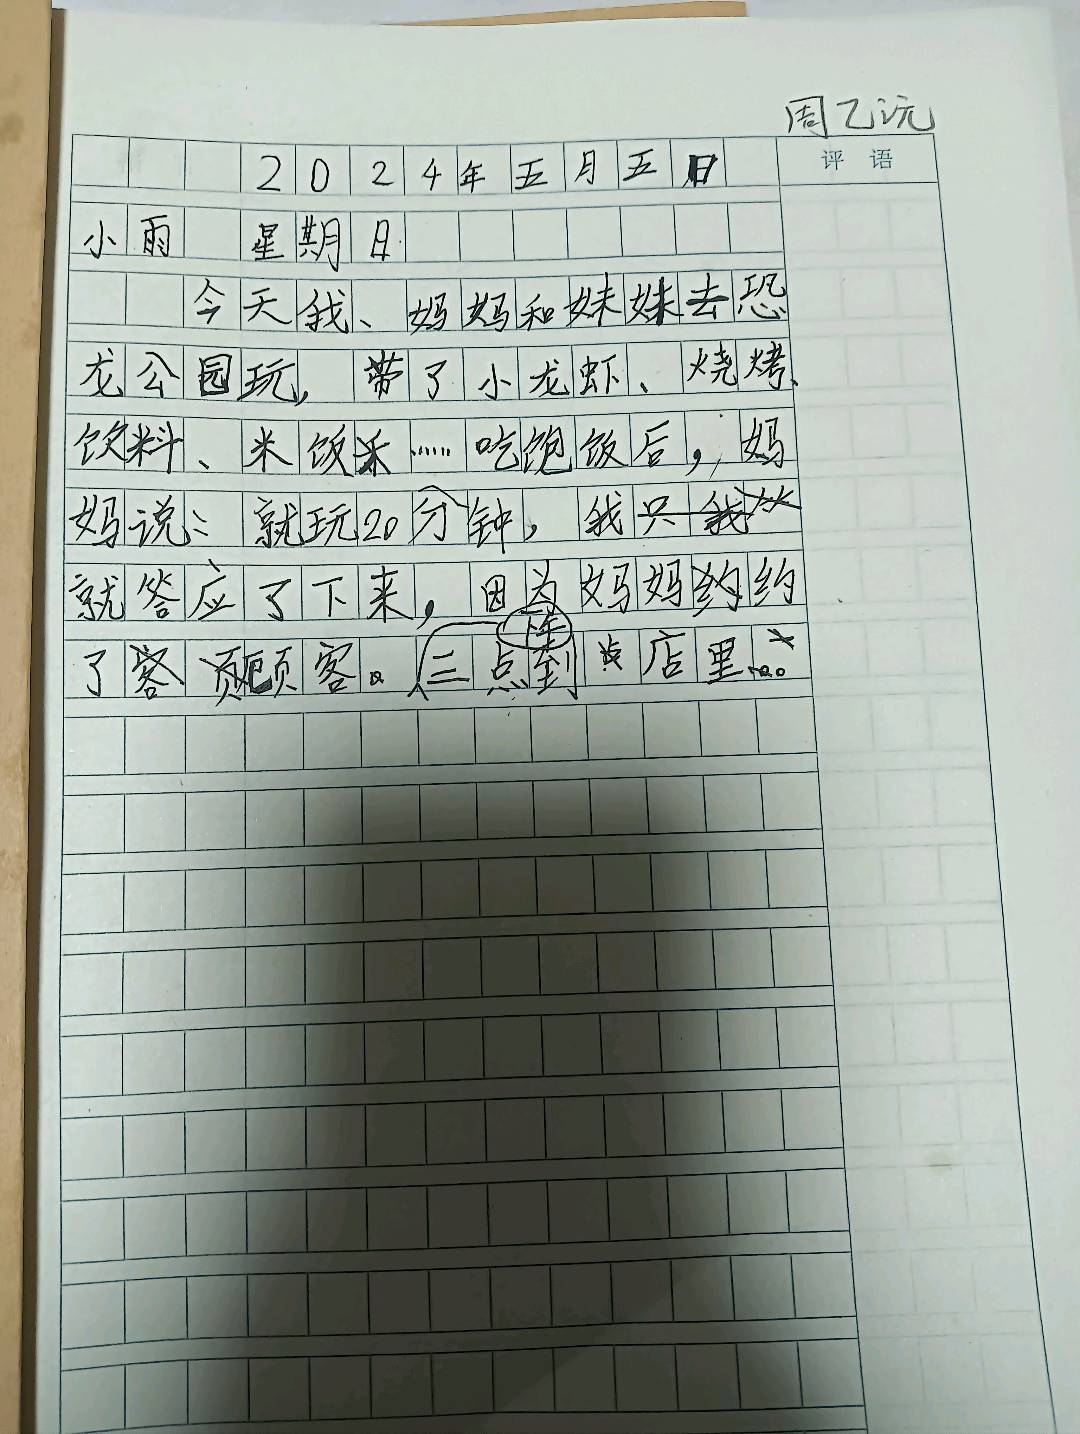 周乙沅
评语
2024年五月五日
小雨 星期日
今天我、妈妈和妹妹去恐
龙公园玩,带了小龙虾、烧烤、
饮料、米饭……吃饱饭后,妈
妈说:就玩20分钟,我
就答应了下来,因为妈妈约
了顾客。三点到店里。